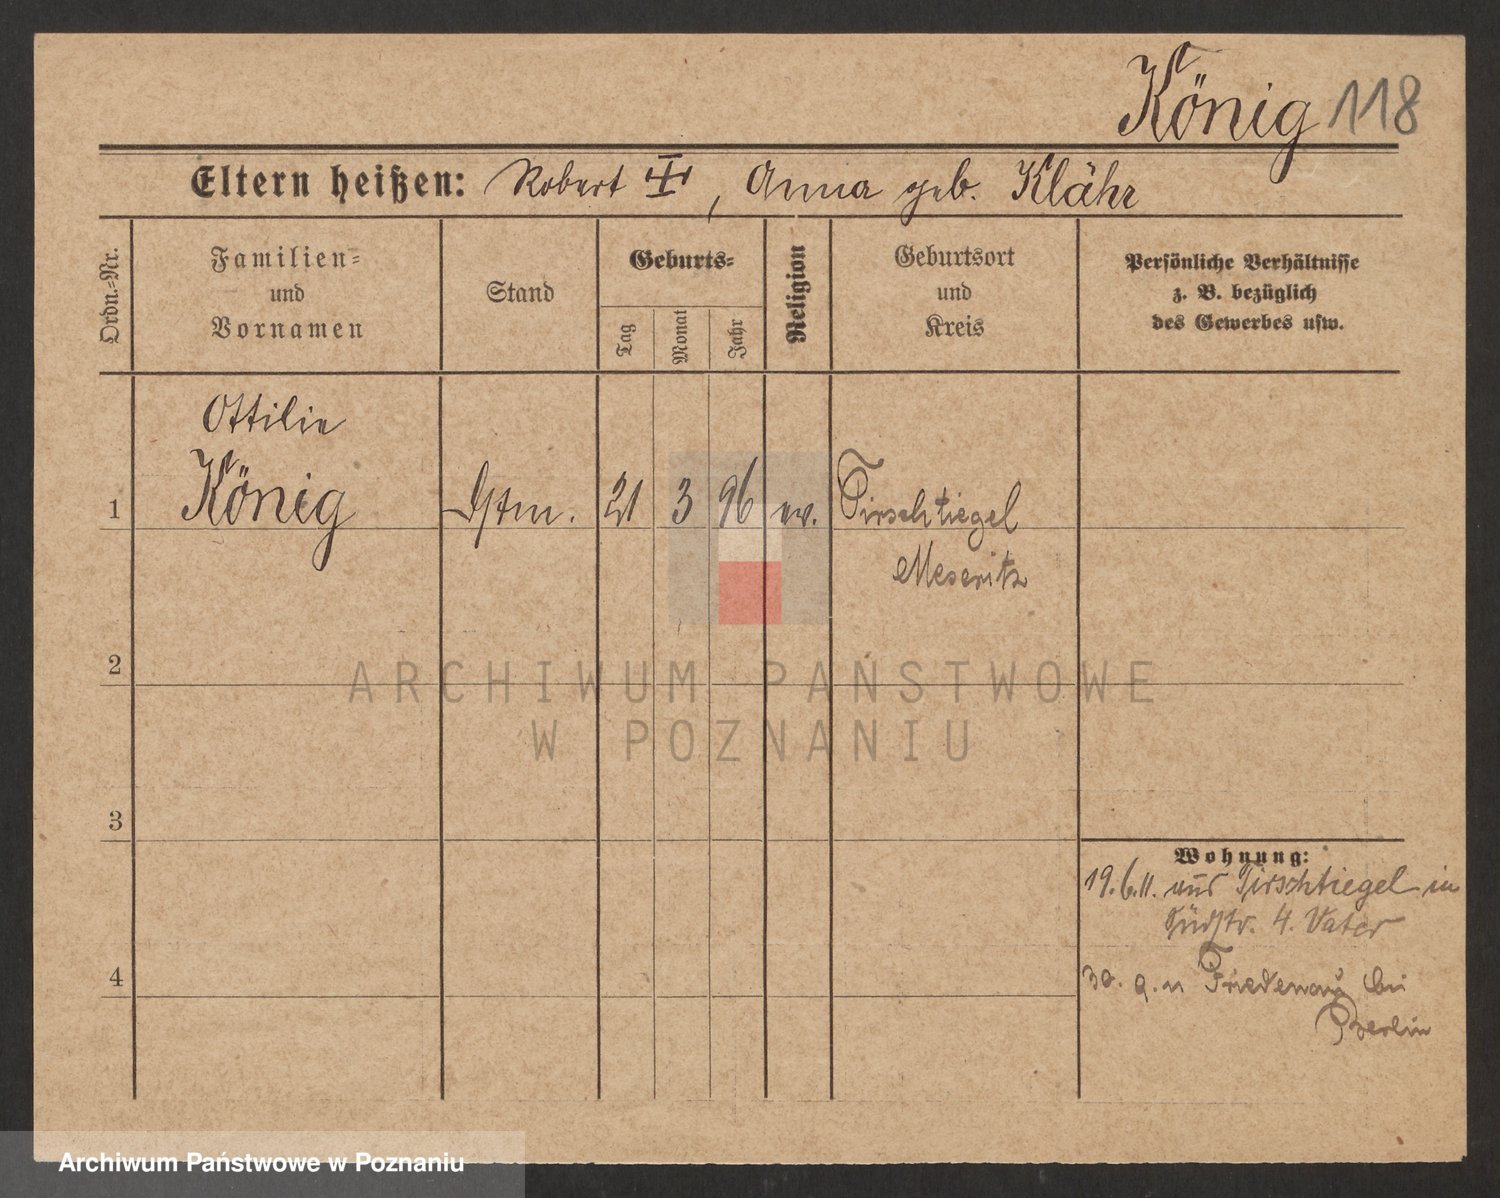 König 118
Eltern heißen: Robert ♱, Anna geb. Klähr
Ordn.-Nr.
Familien-
und
Vornamen
Stand
Geburts-
Tag
Monat
Jahr
Religion
Geburtsort
und
Kreis
Persönliche Verhältnisse
z. B. bezüglich
des Gewerbes usw.
Ottilie
1 König Dstm. 21 3 96 ev. Tirschtiegel
Meseritz
2
ARCHIWUM PAŃSTWOWE
W POZNANIU
3
Wohnung:
19.6.11. aus Tirschtiegel in
Südstr. 4. Vater
4
30. 9. 11 Friedenau bei
Berlin
Archiwum Państwowe w Poznaniu